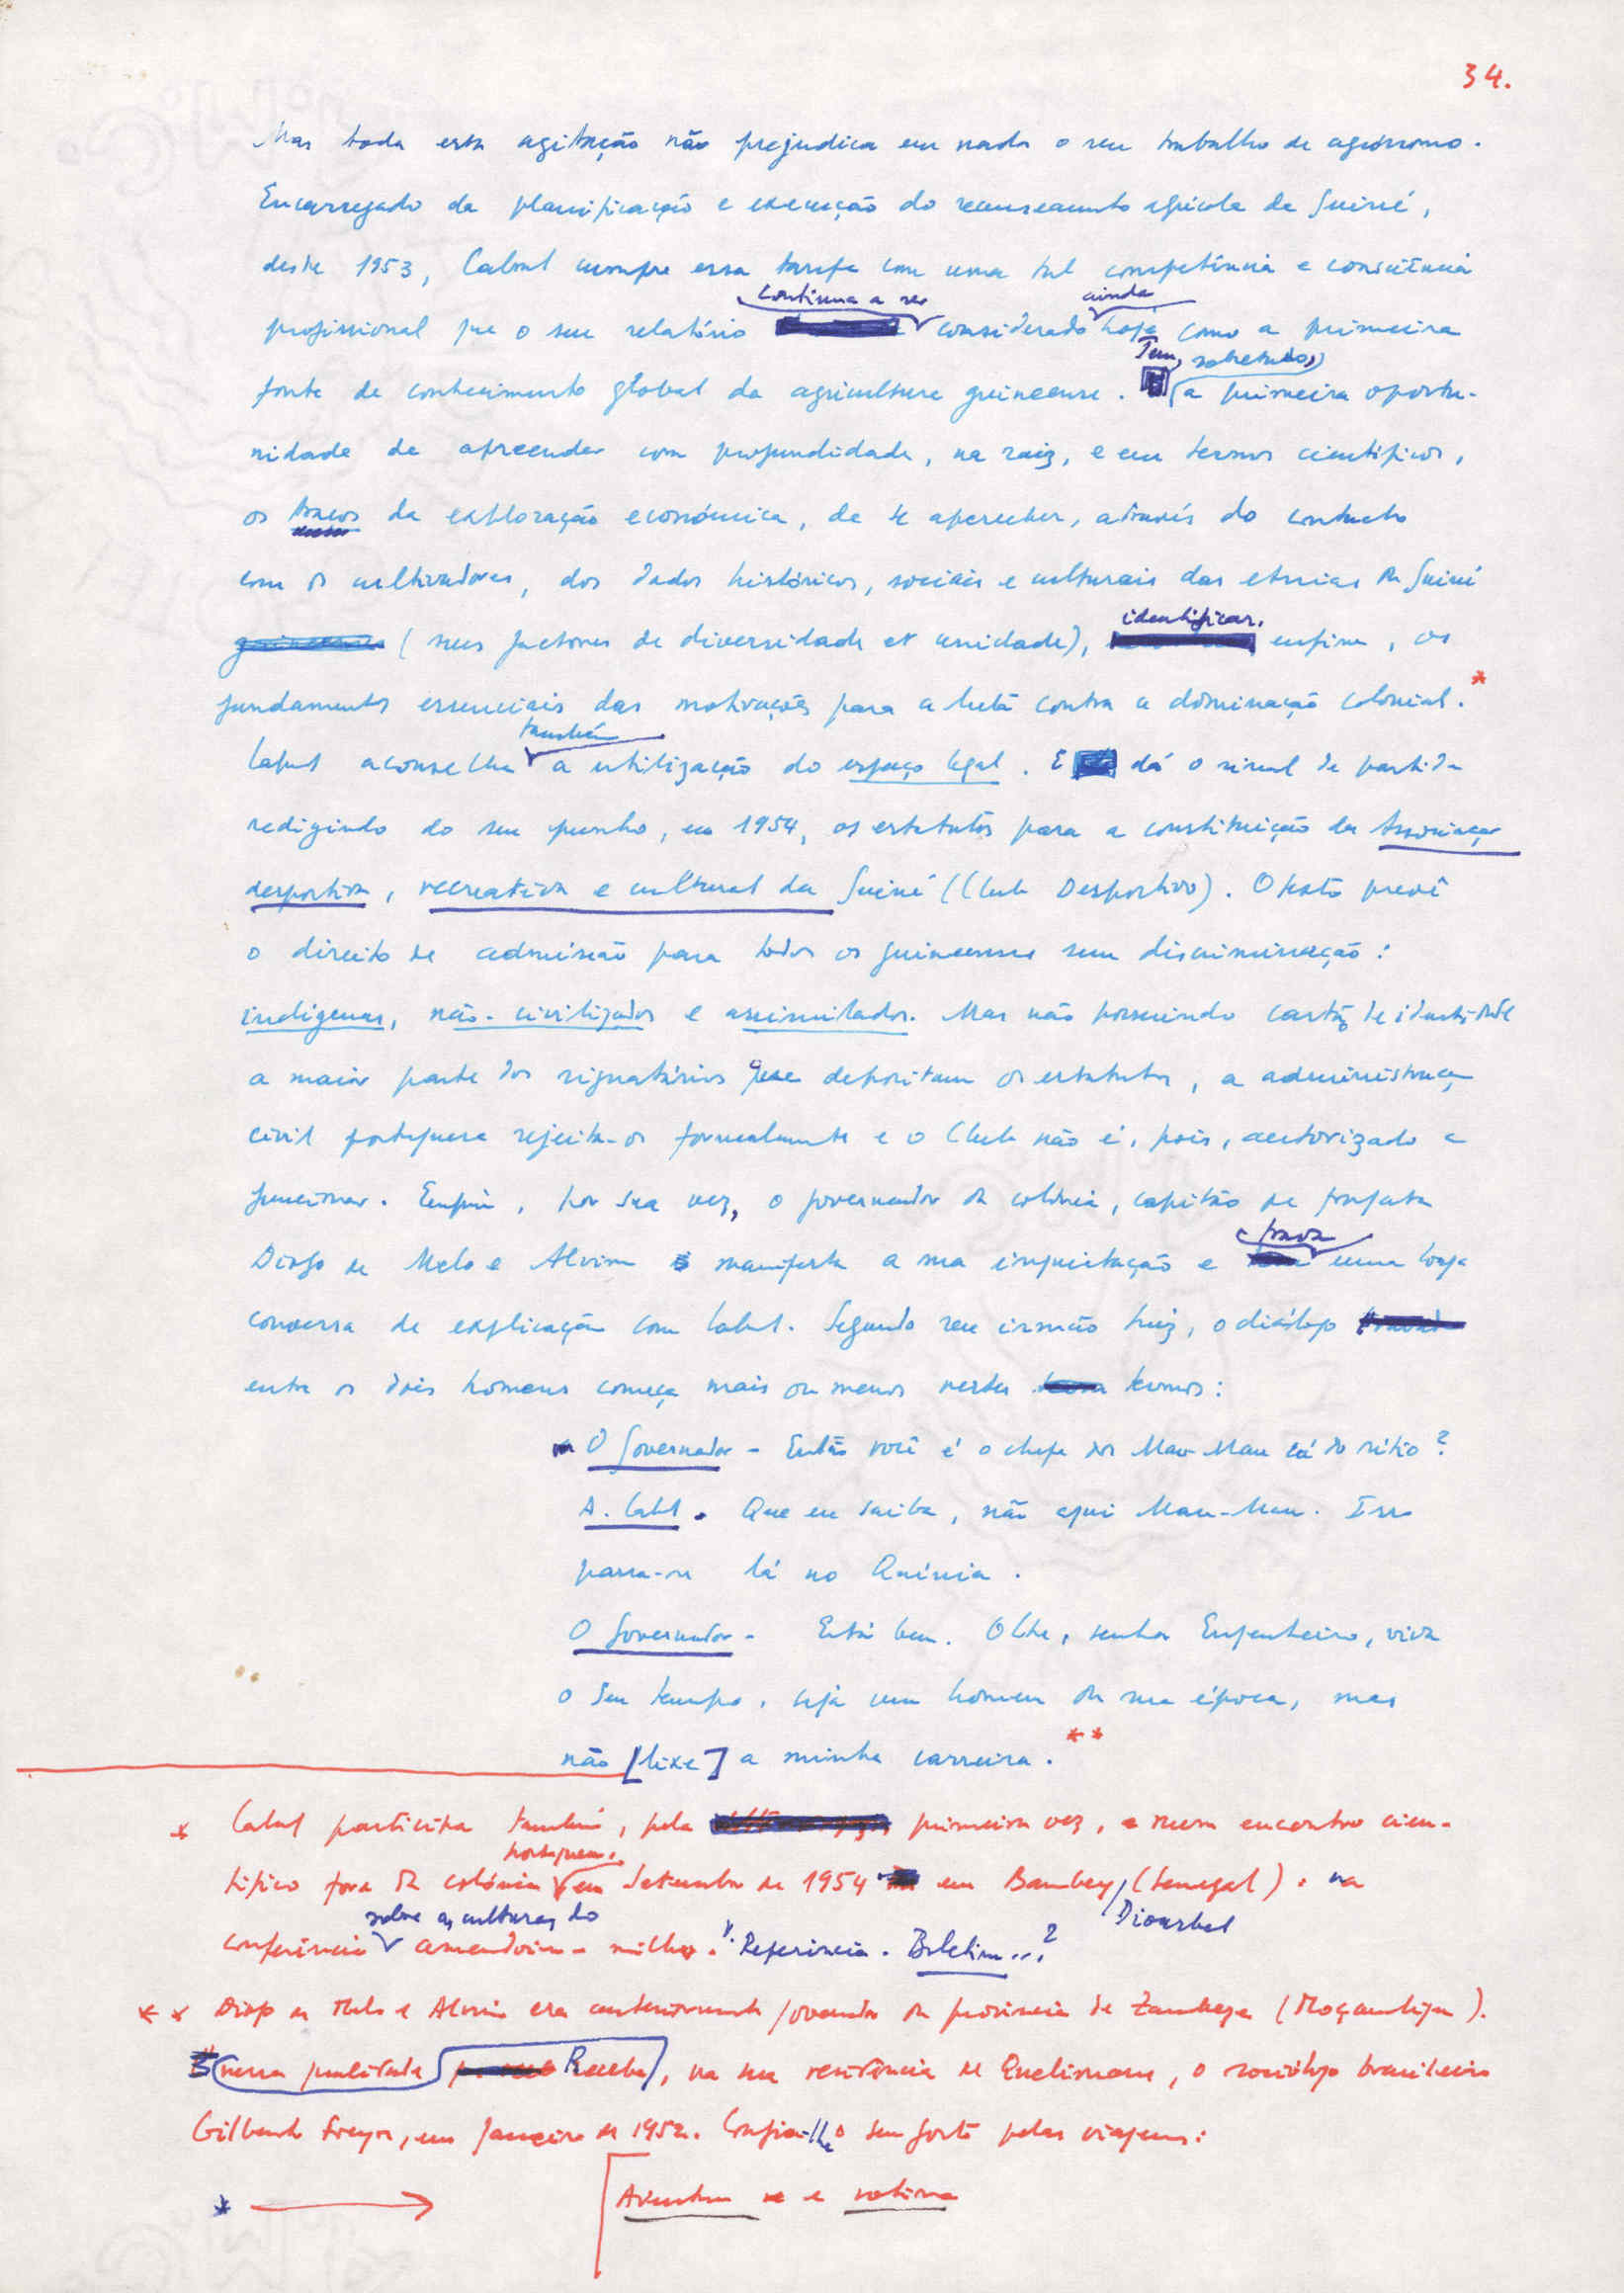 34.
Mas toda esta agitação não prejudica em nada o seu trabalho de agrónomo.
Encarregado da planificação e execução do recenseamento agrícola da Guiné,
desde 1953, Cabral cumpre essa tarefa com uma tal competência e consciência
continua a ser ainda
profissional que o seu relatório considerado hoje como a primeira
Tem, sobretudo,
fonte de conhecimento global da agricultura guineense. a primeira oportu-
nidade de apreender com profundidade, na raiz, e em termos científicos,
os traços da exploração económica, de se aperceber, através do contacto
com os cultivadores, dos dados históricos, sociais e culturais das etnias da Guiné
identificar,
guineense (seus factores de diversidade et unidade), enfim, os
fundamentos essenciais das motivações para a luta contra a dominação colonial. *
também
Cabral aconselha a utilização do espaço legal. E dá o sinal de partida
redigindo do seu punho, em 1954, os estatutos para a constituição da Associação
desportiva, recreativa e cultural da Guiné (Club Desportivo). O texto prevê
o direito de admissão para todos os guineenses sem discriminação:
indígenas, não-civilizados e assimilados. Mas não possuindo cartão de identidade
a maior parte dos signatários que depositam os estatutos, a administração
civil portuguesa rejeita-os formalmente e o Club não é, pois, autorizado a
funcionar. Enfim, por sua vez, o governador da colónia, capitão de fragata
trava
Diogo de Melo e Alvim manifesta a sua inquietação e uma longa
conversa de explicação com Cabral. Segundo seu irmão Luiz, o diálogo
entre os dois homens começa mais ou menos nestes termos:
O Governador - Então você é o chefe dos Mau-Mau cá do sítio?
A. Cabral. Que eu saiba, não aqui Mau-Mau. Isso
passa-se lá no Quénia.
O Governador - Está bem. Olhe, senhor Engenheiro, viva
o seu tempo, seja um homem da sua época, mas
não [lixe] a minha carreira. **
* Cabral participa também, pela primeira vez, num encontro cien-
portuguesa,
tífico fora da colónia em Setembro de 1954 em Bambey (Senegal). na
sobre as culturas do Diourbel
conferência amendoim - milho. Referência. Boletim...?
** Diogo de Melo e Alvim era anteriormente governador da província de Zambeze (Moçambique).
nessa qualidade Recebe, na sua residência de Quelimane, o sociólogo brasileiro
Gilberto Freyre, em Janeiro de 1952. Confia-lhe o seu gosto pelas viagens:
* → Aventura e rotina